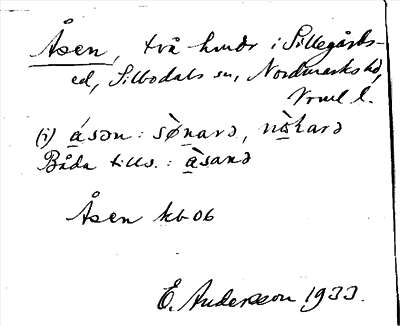 Åsen, två hmdr i Sillegårds-
ed, Silbodals sn, Nordmarks hd,
Vrml l.
(i) á̱sən : sø̱̀narə, nò̱karə
Båda tills. : à̱sanə
Åsen kb 06
E. Andersson 1933.